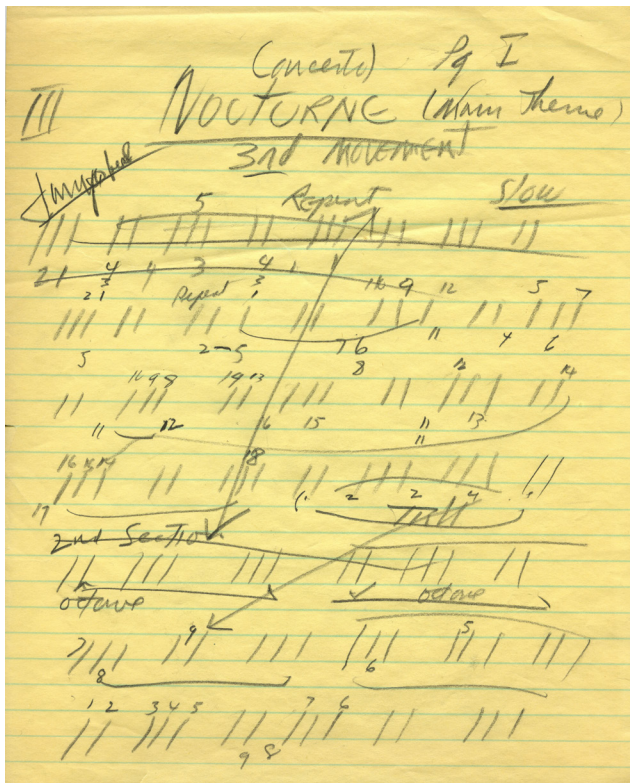 (Concerto) Pg I
III NOCTURNE (Main Theme)
3rd MOVEMENT
5 Repeat Slow
21 4 4 3 4 1 1
3 3
2 1 Repeat 1 10 9 12 5 7
5 2-5 76 11 4 6
8
10 9 8 19 13 12 14
11 12 6 15 11 13
11
16 15 14 18
17 1. 2 2 4 1
2nd Section
octave octave
7 9 5
8 6
1 2 3 4 5 7 6
9 8